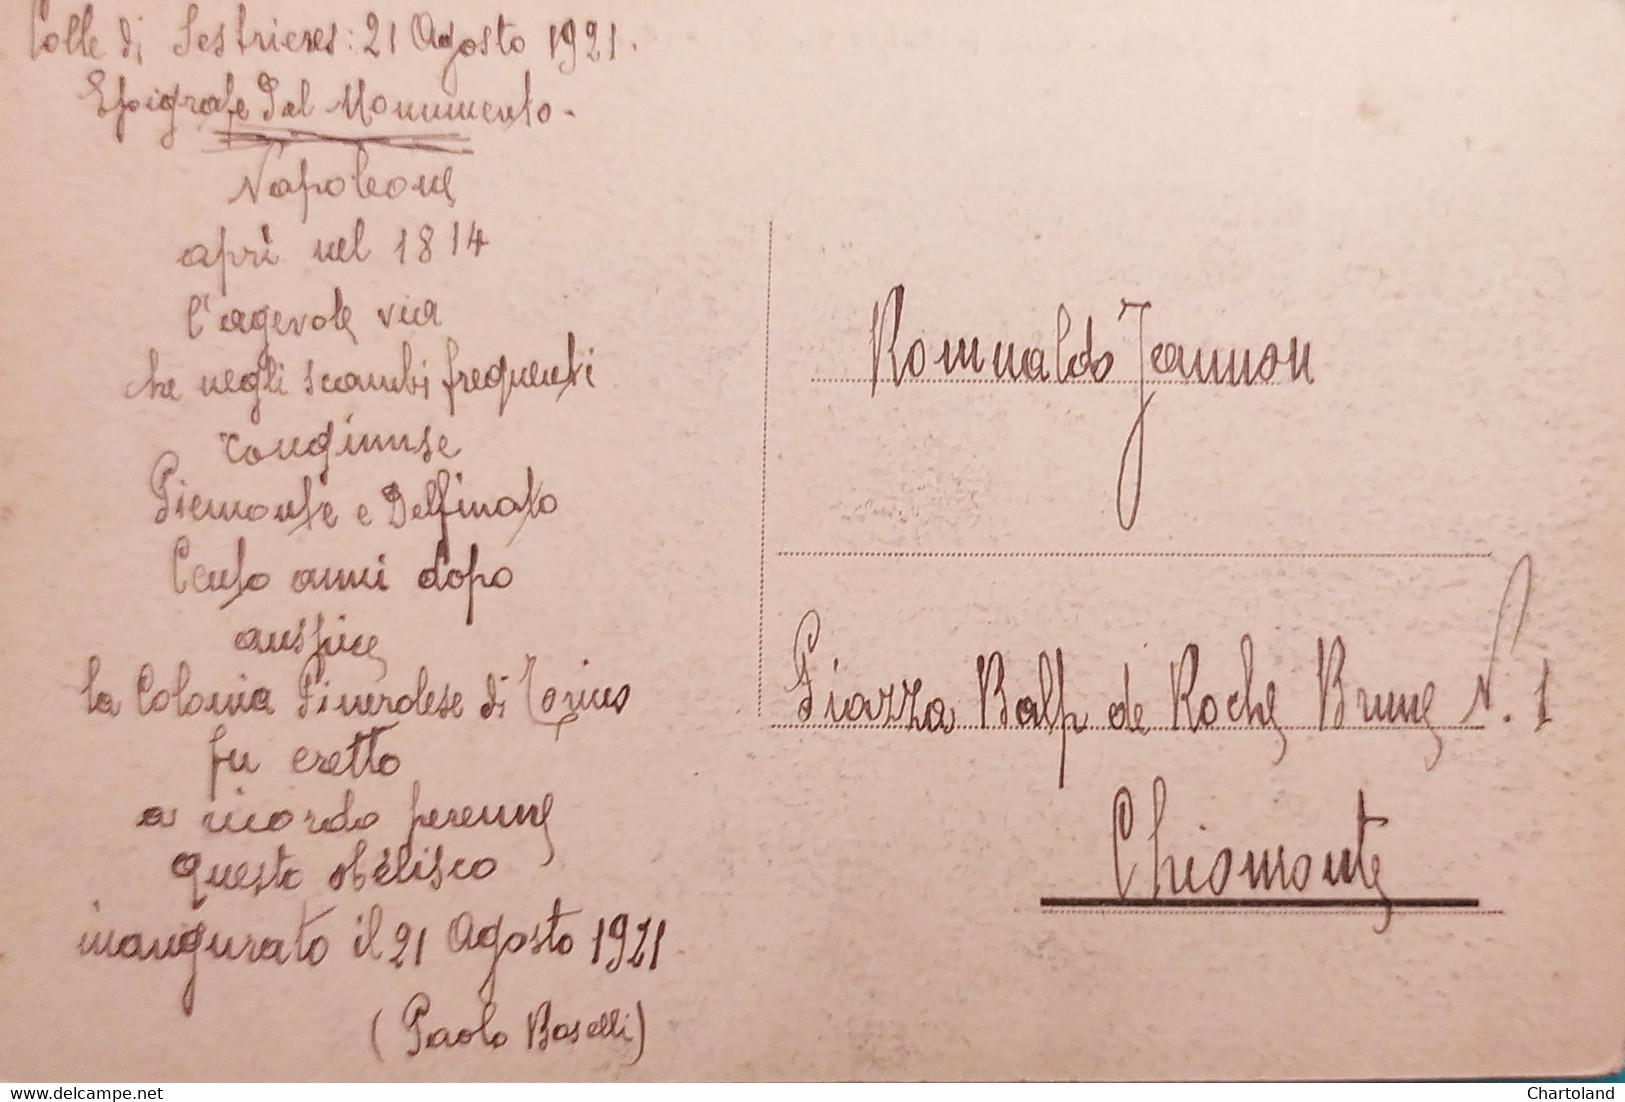 Colle di Sestrieres: 21 Agosto 1921.
Epigrafe Del Monumento.
Napoleone
aprì nel 1814
l'agevole via
che negli scambi frequenti
congiunse
Piemonte e Delfinato
Cento anni dopo
auspice
la Colonia Pinerolese di Torino
fu eretto
a ricordo perenne
questo obelisco
inaugurato il 21 Agosto 1921
(Paolo Boselli)
Romualdo Jannon
Piazza Balp de Roche Brune N. 1
Chiomonte
www.delcampe.net
Chartoland